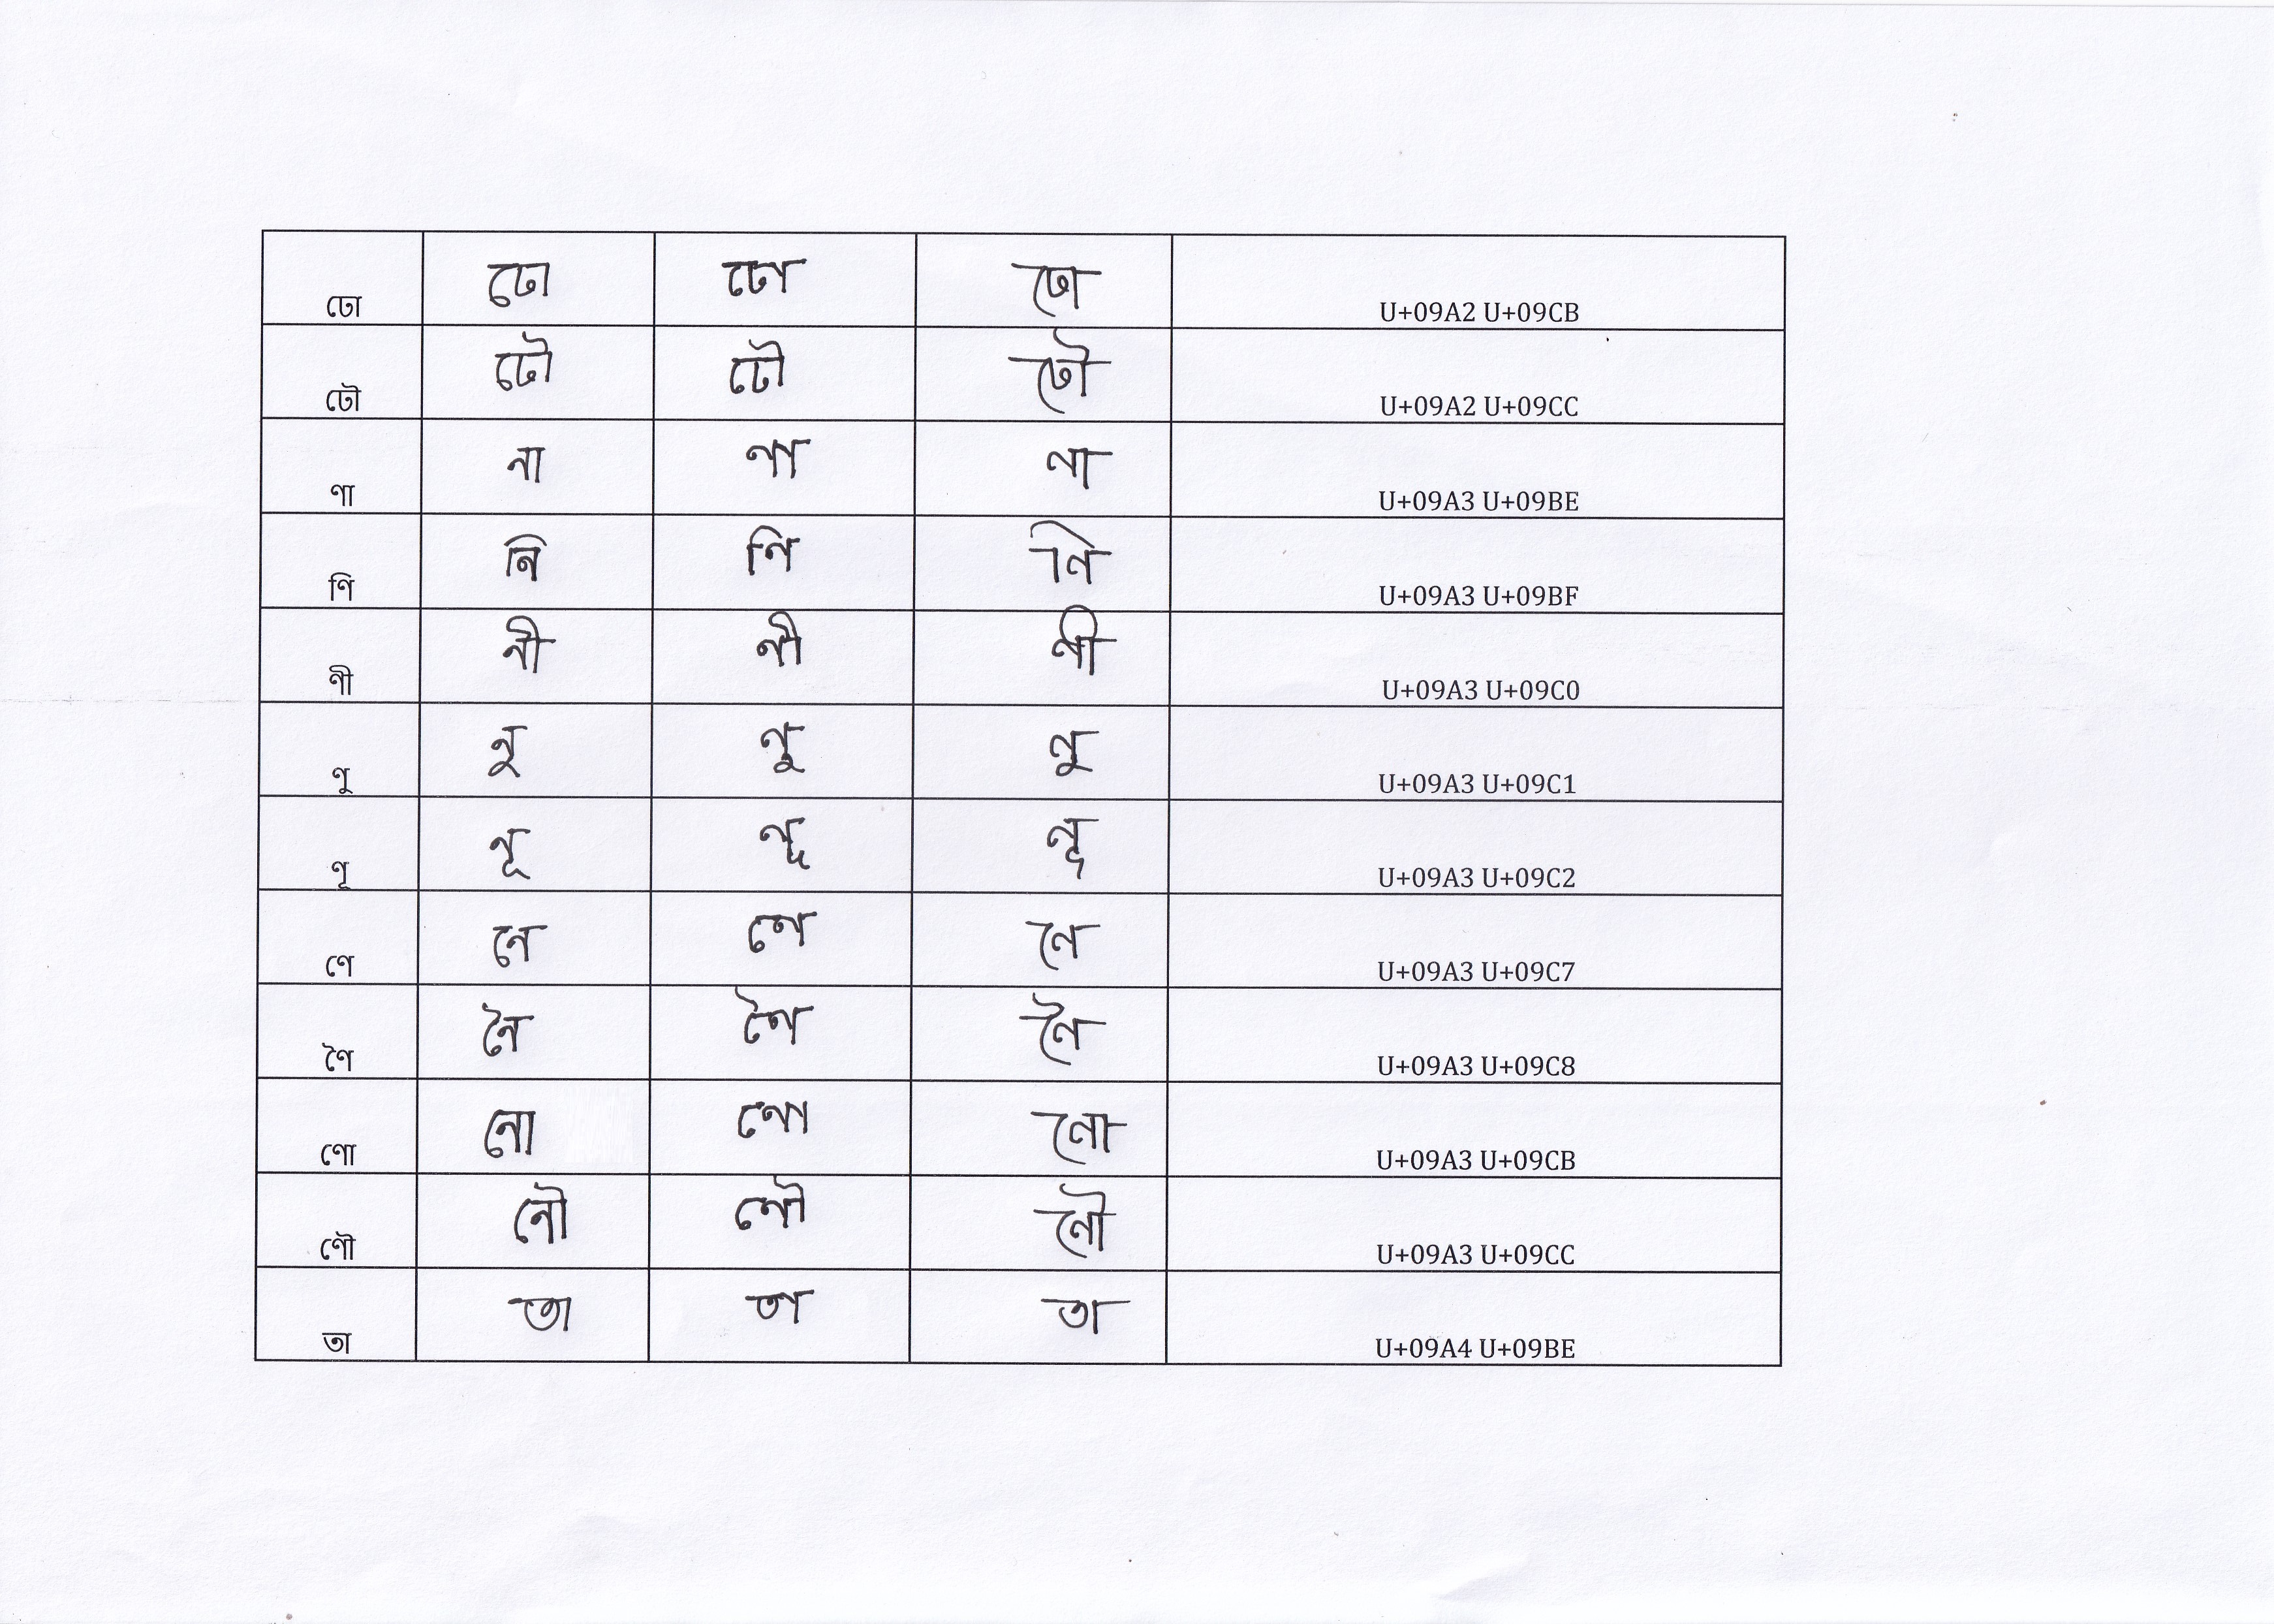 ঢো ঢো ঢো ঢো U+09A2 U+09CB
ঢৌ ঢৌ ঢৌ ঢৌ U+09A2 U+09CC
ণা ণা ণা ণা U+09A3 U+09BE
ণি ণি ণি ণি U+09A3 U+09BF
ণী ণী ণী ণী U+09A3 U+09C0
ণু ণু ণু ণু U+09A3 U+09C1
ণূ ণূ ণূ ণূ U+09A3 U+09C2
ণে ণে ণে ণে U+09A3 U+09C7
ণৈ ণৈ ণৈ ণৈ U+09A3 U+09C8
ণো ণো ণো ণো U+09A3 U+09CB
ণৌ ণৌ ণৌ ণৌ U+09A3 U+09CC
তা তা তা তা U+09A4 U+09BE